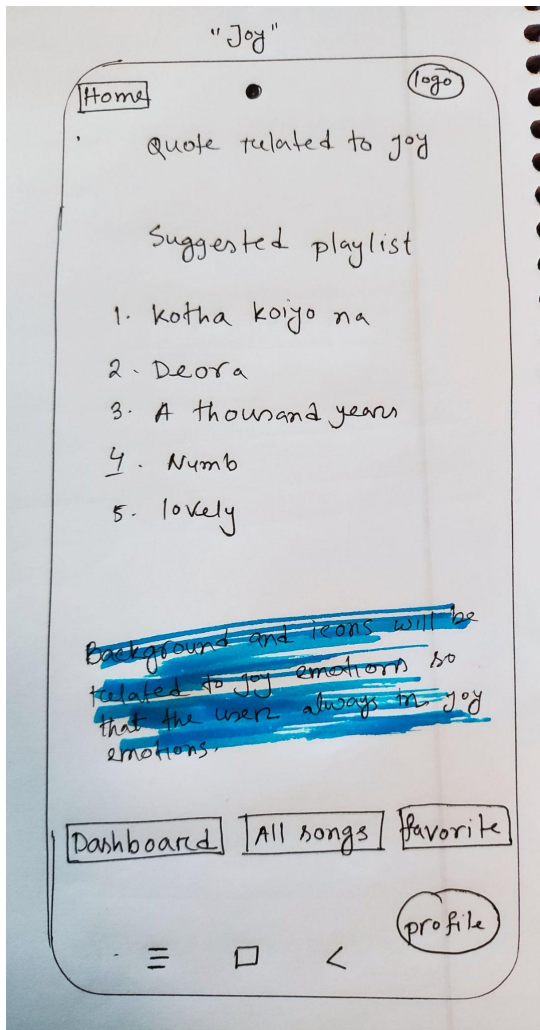 "Joy"
Home
logo
Quote related to joy
Suggested playlist
1. Kotha koiyo na
2. Deora
3. A thousand years
4. Numb
5. lovely
Background and icons will be
related to joy emotions so
that the user always in joy
emotions.
Dashboard
All songs
favorite
profile